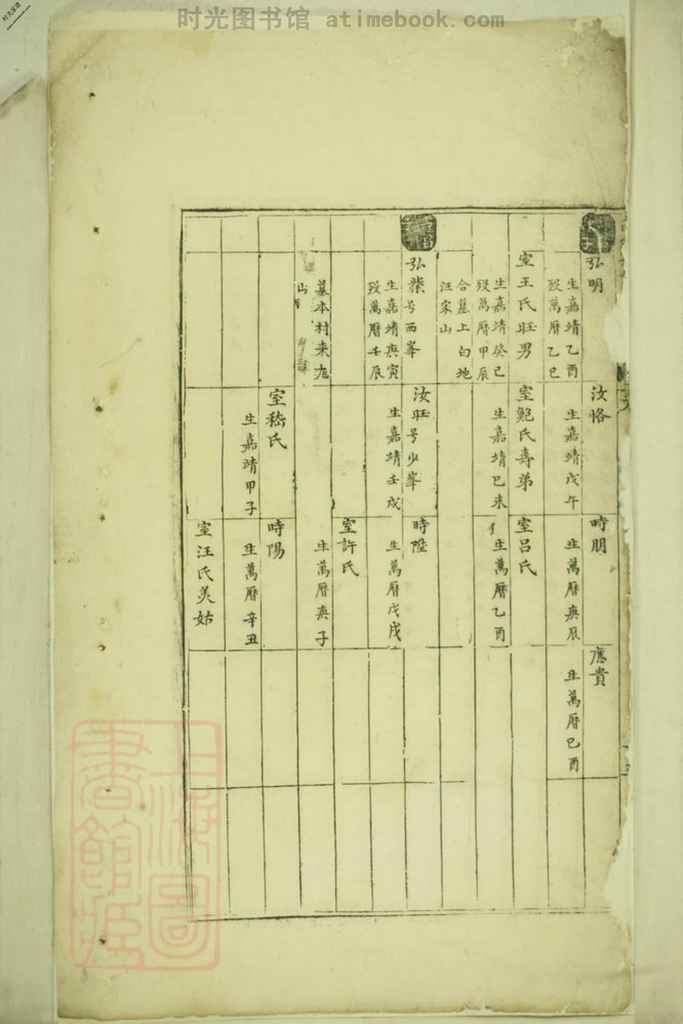 时光图书馆 atimebook.com
时光图书馆
弘明
生嘉靖乙酉
歿萬曆乙巳
室王氏旺男
生嘉靖癸巳
歿萬曆甲辰
合墓上白地
汪家山
弘葉号西峯
生嘉靖庚寅
歿萬曆壬辰
墓本村来龙
山
汝恪
生嘉靖戊午
室鮑氏壽弟
生嘉靖己未
汝旺号少峯
生嘉靖壬戌
室嵇氏
生嘉靖甲子
時朋
生萬曆庚辰
室吕氏
生萬曆乙酉
時陞
生萬曆戊戌
室許氏
生萬曆庚子
時陽
生萬曆辛丑
室汪氏美姑
應貴
生萬曆己酉
上海圖書館藏